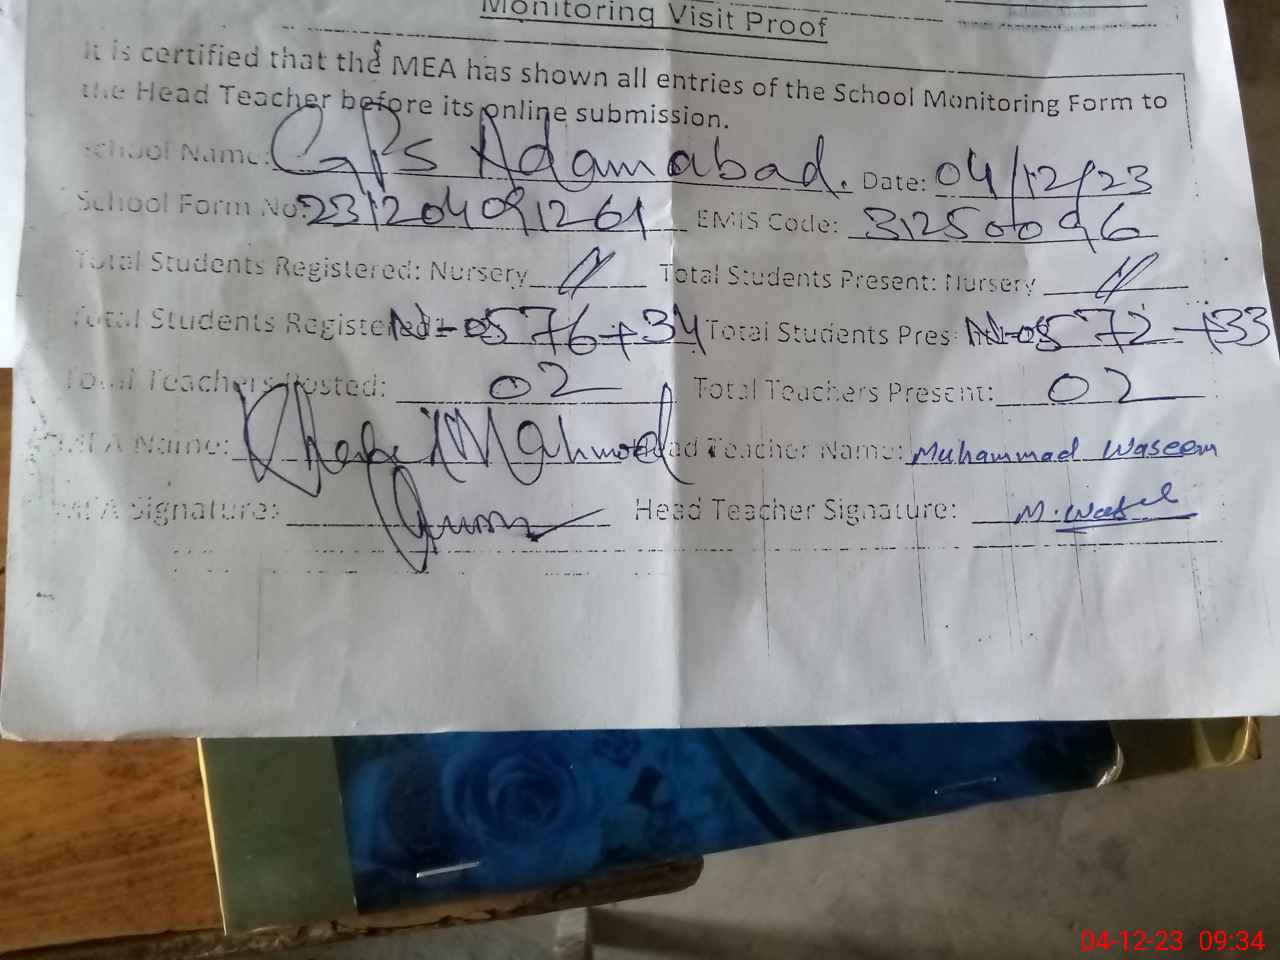 Monitoring Visit Proof
It is certified that the MEA has shown all entries of the School Monitoring Form to
the Head Teacher before its online submission.
School Name: GPS Adamabad. Date: 04/12/23
School Form No: 231204091261 EMIS Code: 31250096
Total Students Registered: Nursery Total Students Present: Nursery
Total Students Registered 76+34 Total Students Pres 72+33
Total Teachers Posted: 02 Total Teachers Present: 02
MEA Name: Mahmood Head Teacher Name: Muhammad Waseem
MEA Signature: Head Teacher Signature: M.
04-12-23 09:34